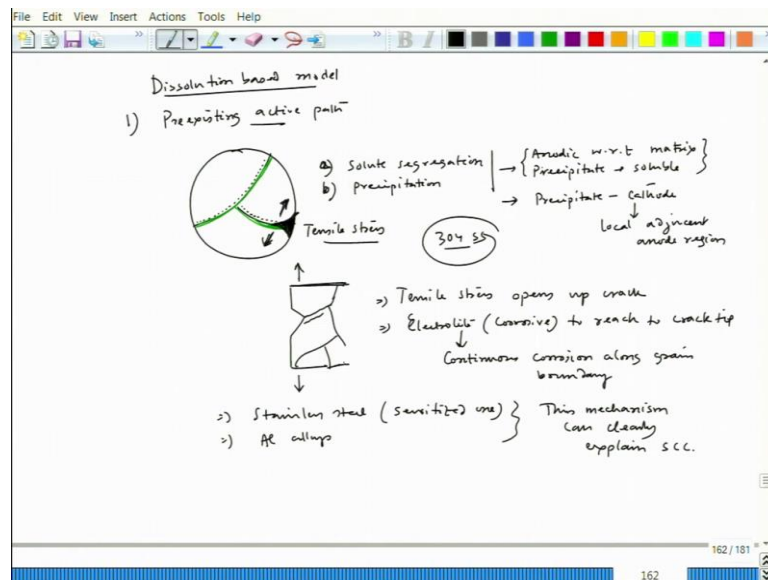 File Edit View Insert Actions Tools Help
B I
Dissolution based model
1) Preexisting active path
a) Solute segregation → {Anodic w.r.t matrix
b) Precipitation Precipitate → soluble}
→ Precipitate - Cathode
↓
Local adjacent
anode region
Tensile stress
304 SS
⇒) Tensile stress opens up crack
⇒) Electrolite (corrosive) to reach to crack tip
↓
Continuous corrosion along grain
boundary
⇒) Stainless steel (sensitized one) } This mechanism
⇒) Al alloys can clearly
explain SCC.
162 / 181
162